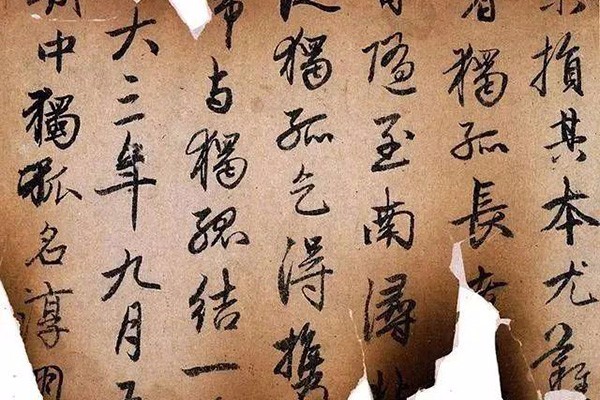 損其本尤難
獨孤長
隨至南潯
從獨孤乞得攜
與獨孤結一
大三年九月五
中獨孤名淳朋